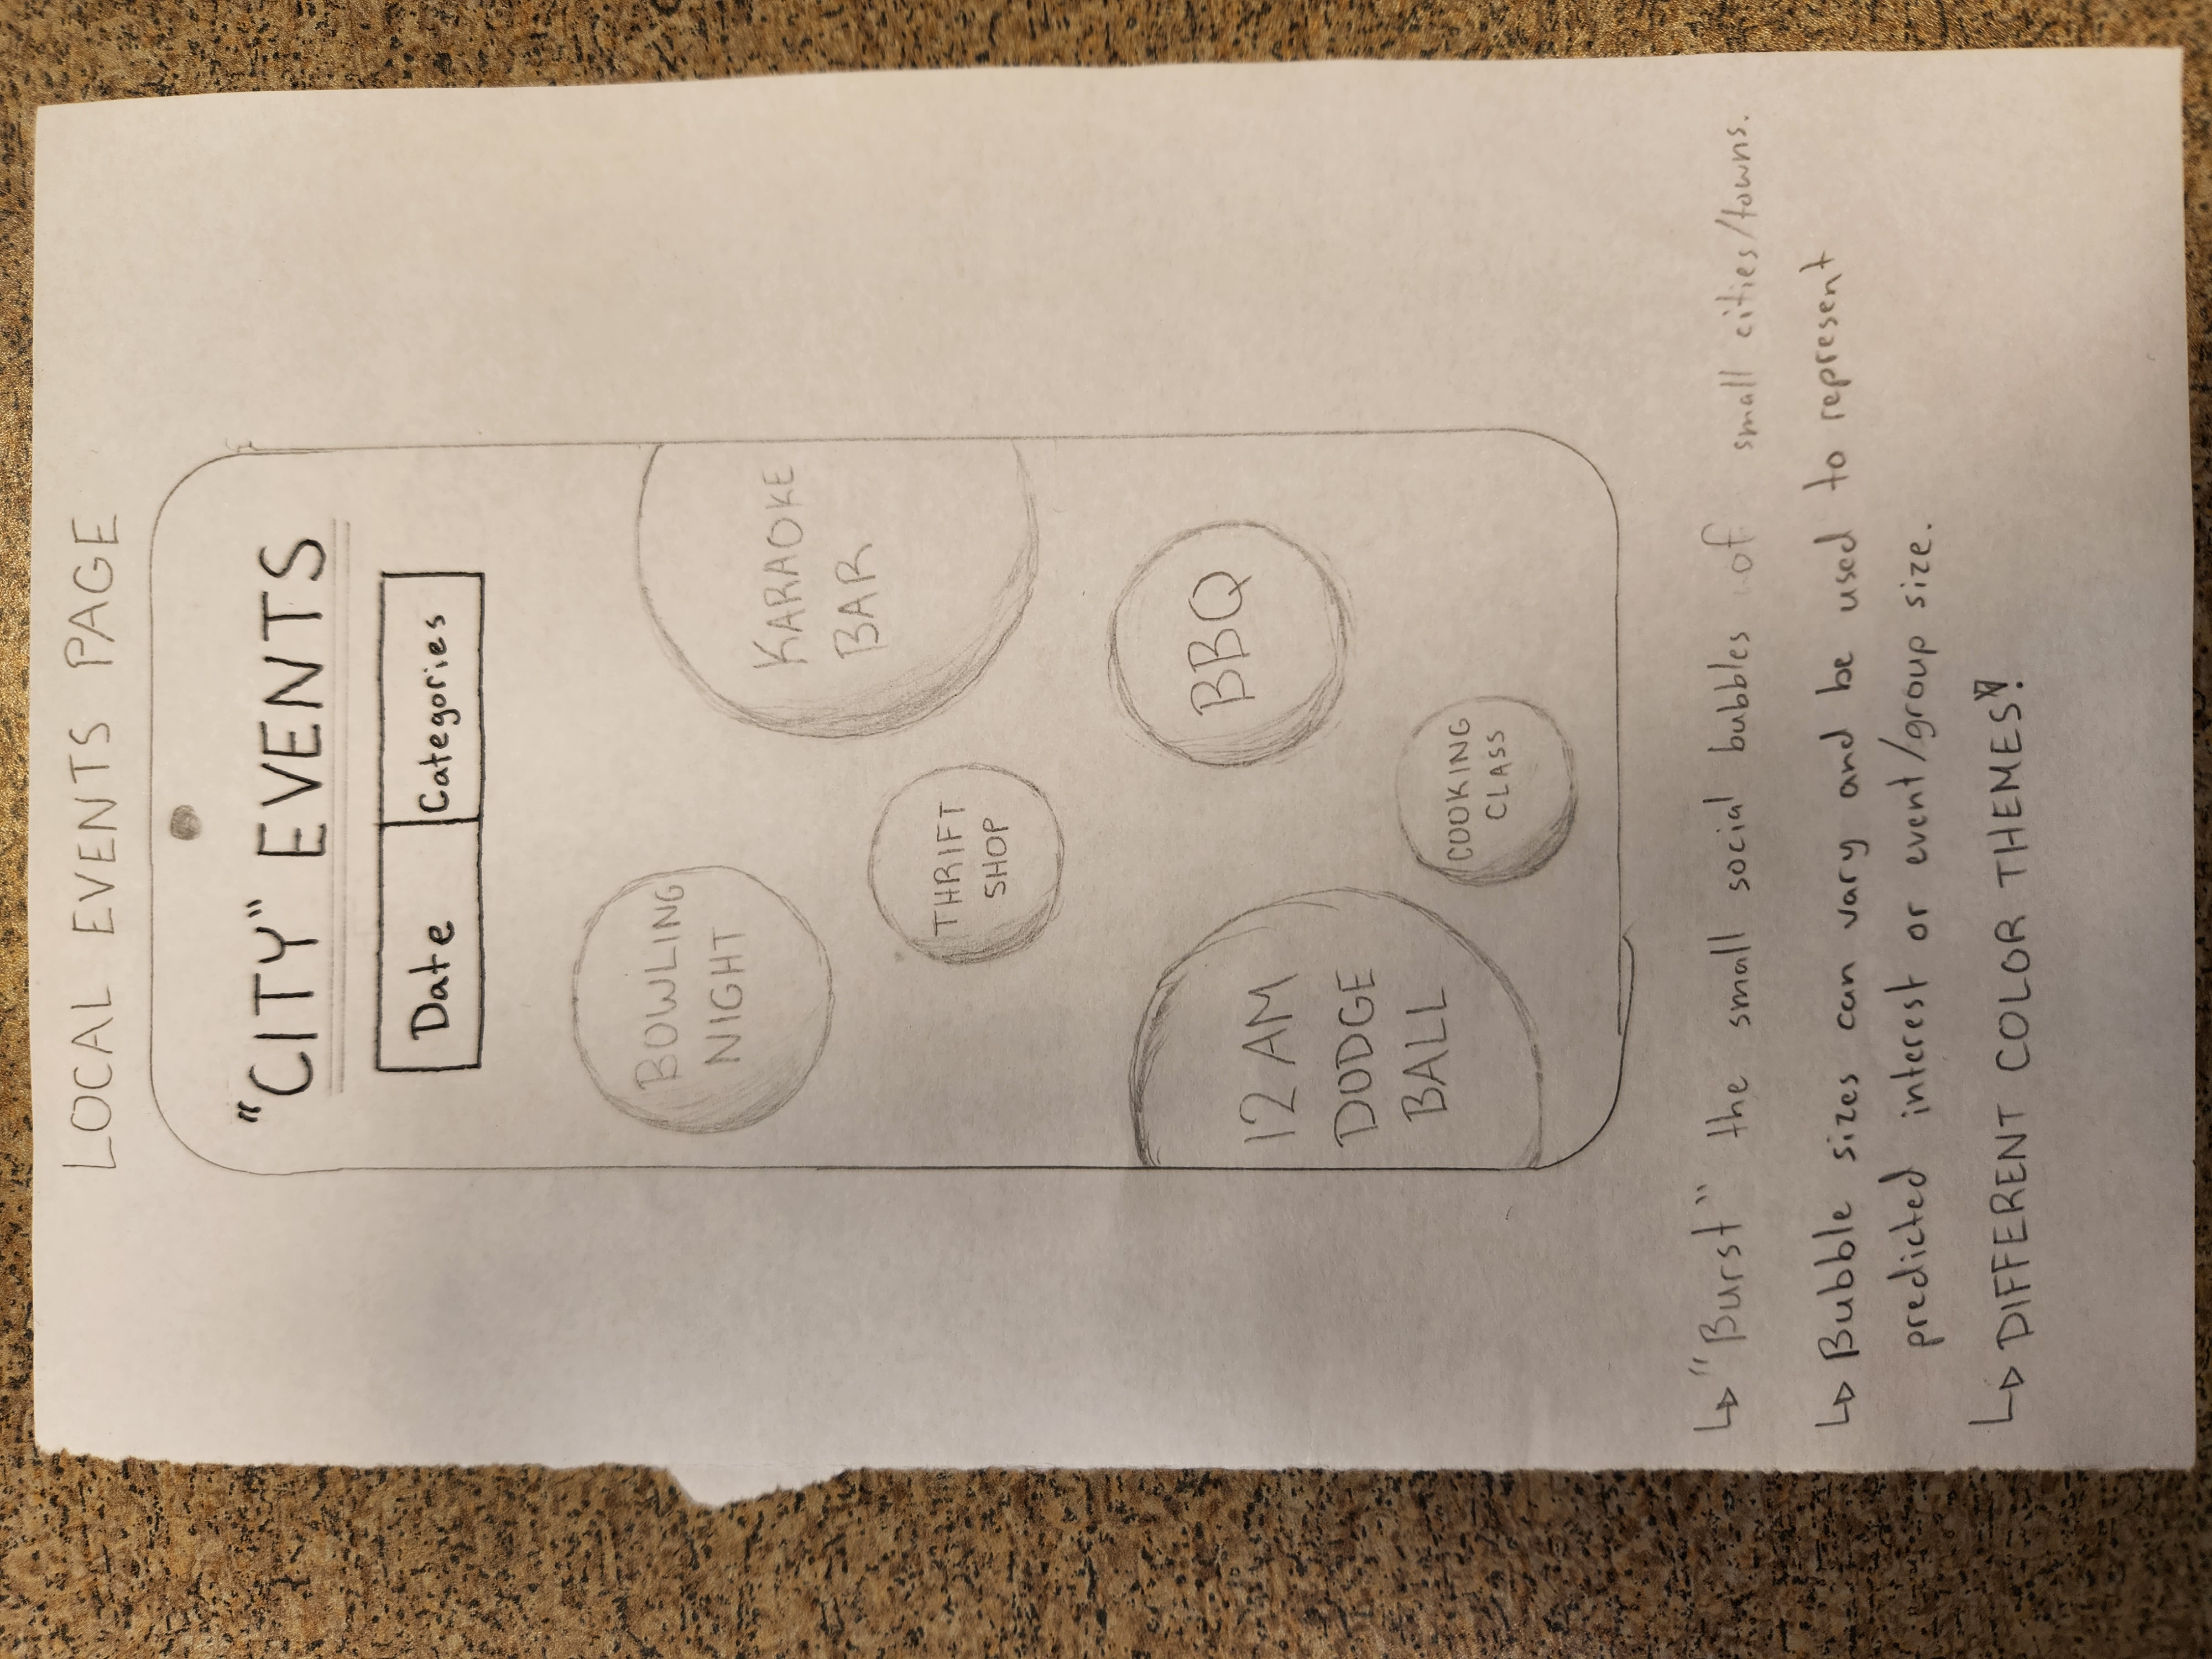 LOCAL EVENTS PAGE
"CITY" EVENTS
Date Categories
BOWLING
NIGHT
KARAOKE
BAR
THRIFT
SHOP
12 AM
DODGE
BALL
BBQ
COOKING
CLASS
"Burst" the small social bubbles of small cities/towns.
Bubble sizes can vary and be used to represent
predicted interest or event/group size.
DIFFERENT COLOR THEMES!